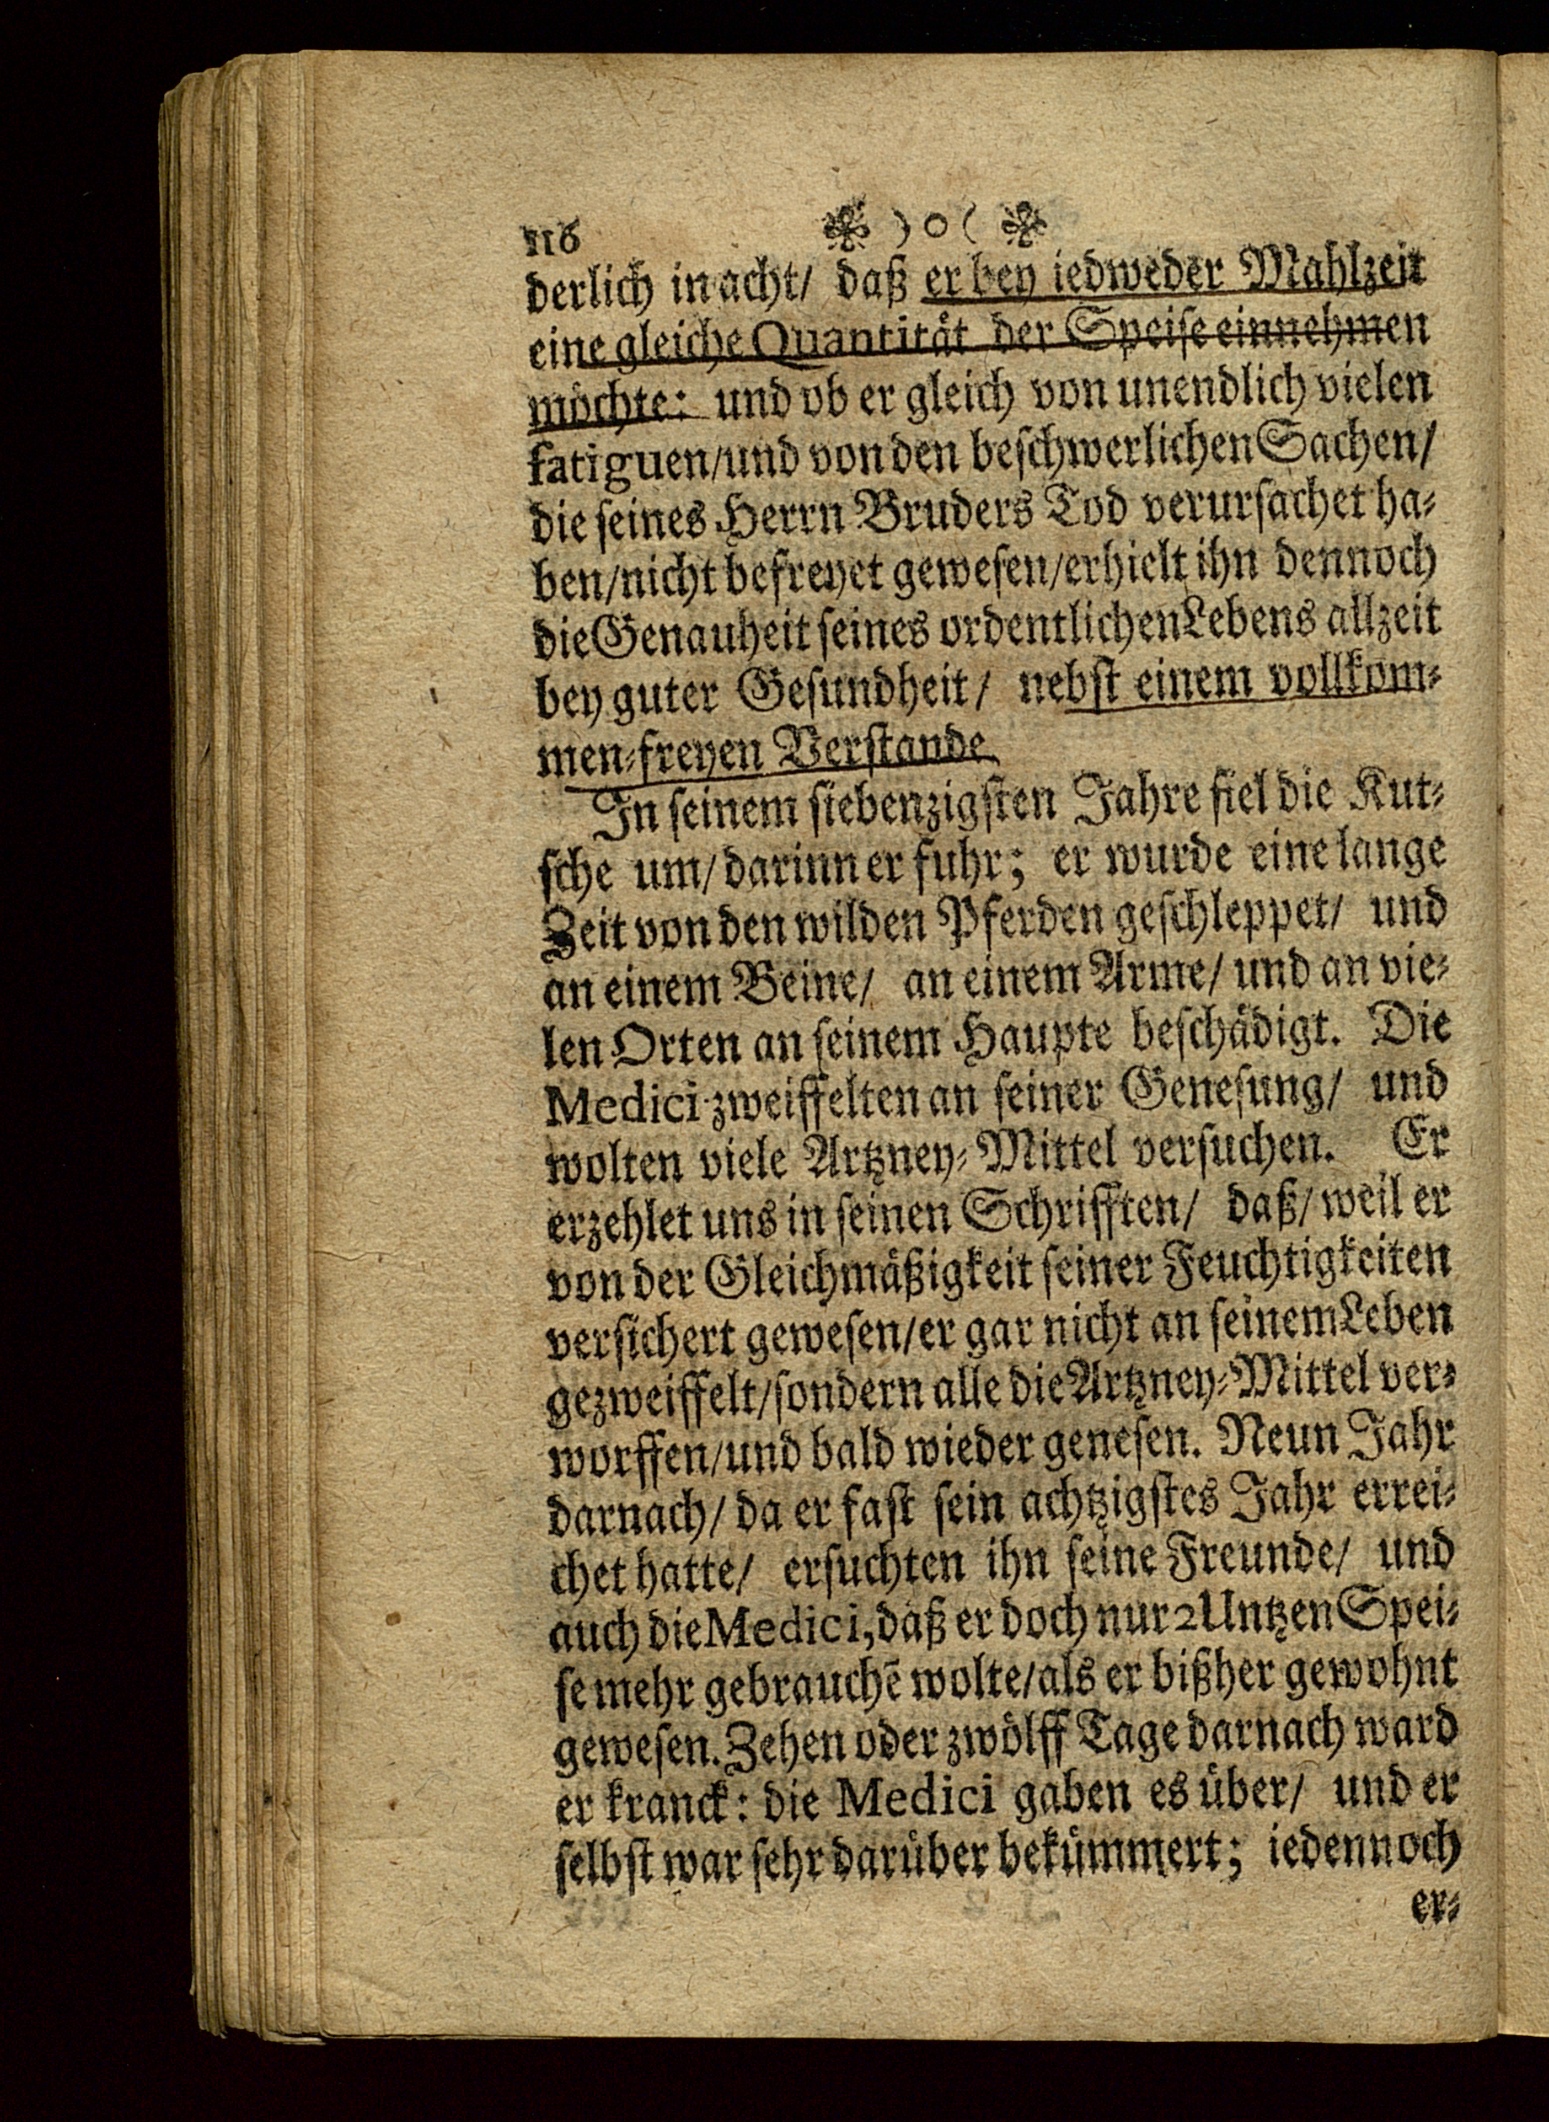 116 ) o (
derlich in acht/ daß er bey iedweder Mahlzeit
eine gleiche Quantität der Speise einnehmen
möchte: und ob er gleich von unendlich vielen
fatiguen/und von den beschwerlichen Sachen/
die seines Herrn Bruders Tod verursachet ha-
ben/nicht befreyet gewesen/erhielt ihn dennoch
die Genauheit seines ordentlichen Lebens allzeit
bey guter Gesundheit/ nebst einem vollkom-
men-freyen Verstande
In seinem siebenzigsten Jahre fiel die Kut-
sche um/darinn er fuhr; er wurde eine lange
Zeit von den wilden Pferden geschleppet/ und
an einem Beine/ an einem Arme/ und an vie-
len Orten an seinem Haupte beschädigt. Die
Medici zweiffelten an seiner Genesung/ und
wolten viele Artzney-Mittel versuchen. Er
erzehlet uns in seinen Schrifften/ daß/ weil er
von der Gleichmäßigkeit seiner Feuchtigkeiten
versichert gewesen/er gar nicht an seinem Leben
gezweiffelt/sondern alle die Artzney-Mittel ver-
worffen/und bald wieder genesen. Neun Jahr
darnach/ da er fast sein achtzigstes Jahr errei-
chet hatte/ ersuchten ihn seine Freunde/ und
auch die Medici, daß er doch nur 2 Untzen Spei-
se mehr gebrauchē wolte/als er bißher gewohnt
gewesen. Zehen oder zwölff Tage darnach ward
er kranck: die Medici gaben es über/ und er
selbst war sehr darüber bekümmert; iedennoch
er-